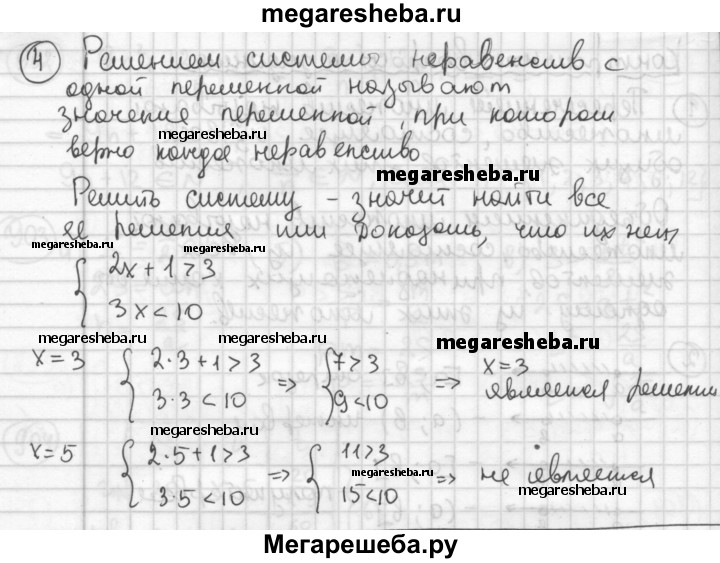 megaresheba.ru
4 Решением системы неравенств с
одной переменной называют
значение переменной, при котором
megaresheba.ru
верно каждое неравенство
megaresheba.ru
Решить систему - значит найти все
её решения или доказать, что их нет,
megaresheba.ru
megaresheba.ru
{ 2x + 1 > 3
3x < 10
megaresheba.ru megaresheba.ru megaresheba.ru
x = 3 { 2·3 + 1 > 3 => { 7 > 3 => x = 3
3·3 < 10 9 < 10 является решени
megaresheba.ru
x = 5 { 2·5 + 1 > 3 => { 11 > 3 => не является
megaresheba.ru
3·5 < 10 15 < 10
megaresheba.ru
megaresheba.ru
Мегарешеба.ру